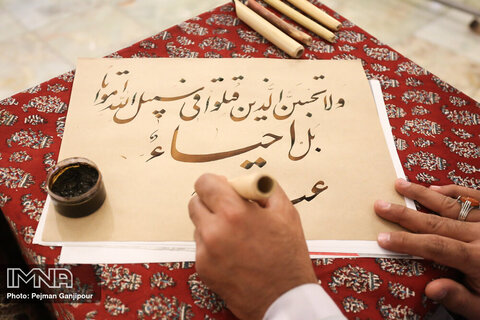 ولا تحسبن الذین قتلوا فی سبیل الله امواتا
بل احیاء
عند
IMNA
Photo: Peyman Ganjipour